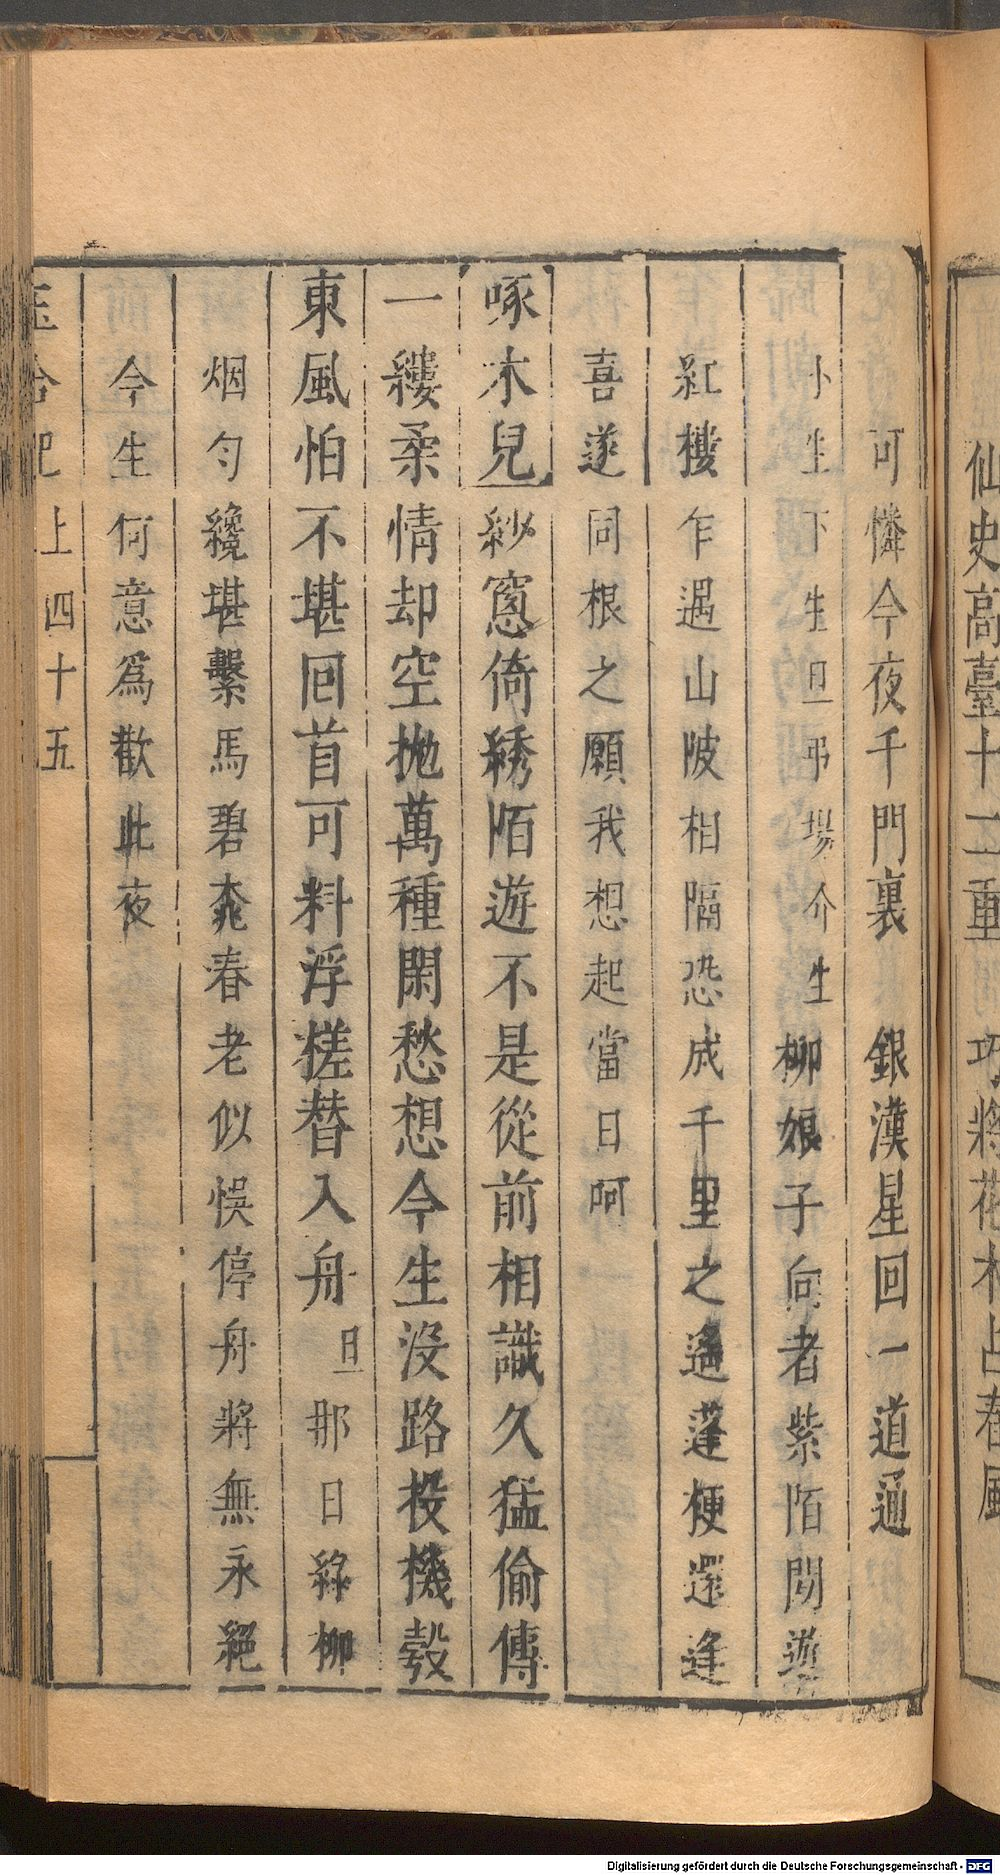 仙史高臺十二重 巧將花木占春風
可憐今夜千門裏 銀漢星回一道通
小生下生旦弔場介生 柳娘子向者紫陌閒遊
紅樓乍遇山陂相隔恐成千里之遙蓬梗還逢
喜遂同根之願我想起當日呵
啄木兒 紗窓倚綉陌遊不是從前相識久猛偷傳
一縷柔情却空拋萬種閑愁想今生沒路投機彀
東風怕不堪回首可料浮槎替入舟 旦 那日綠柳
烟勻纔堪繫馬碧桃春老似悞停舟將無永絕
今生何意為歡此夜
玉合記 上 四十五
Digitalisierung gefördert durch die Deutsche Forschungsgemeinschaft - DFG